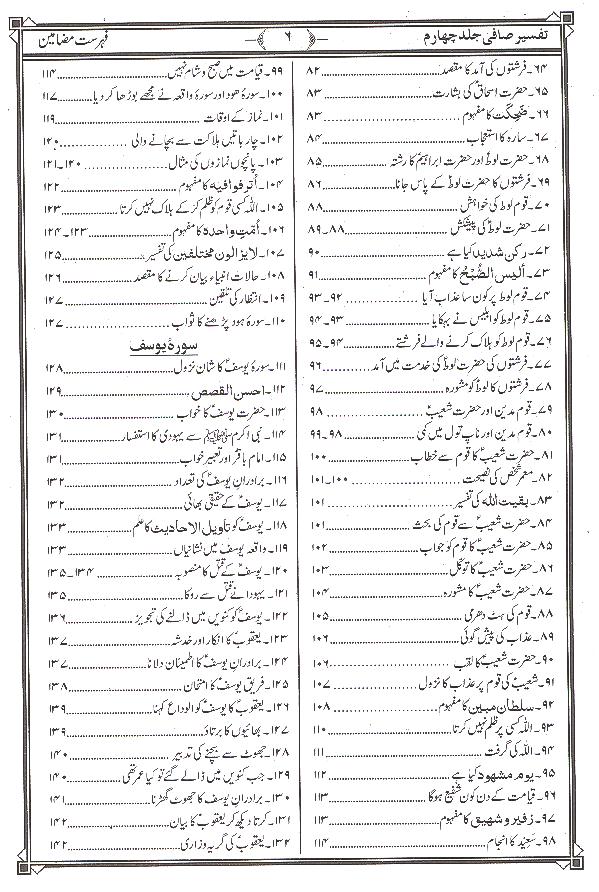 تفسیر صافی جلد چہارم
۶
فہرست مضامین
۶۴۔ فرشتوں کی آمد کا مقصد ۸۲
۶۵۔ حضرت اسحاقؑ کی بشارت ۸۳
۶۶۔ ضحکت کا مفہوم ۸۳
۶۷۔ سارہ کا استعجاب ۸۴
۶۸۔ حضرت لوطؑ اور حضرت ابراہیمؑ کا رشتہ ۸۵
۶۹۔ فرشتوں کا حضرت لوطؑ کے پاس جانا ۸۶
۷۰۔ قوم لوطؑ کی خواہش ۸۸
۷۱۔ حضرت لوطؑ کی پیشکش ۸۸۔۸۹
۷۲۔ رکن شدید کیا ہے ۹۰
۷۳۔ ألیس الصُّبْحُ کا مفہوم ۹۱
۷۴۔ قوم لوطؑ پر کون سا عذاب آیا ۹۲۔۹۳
۷۵۔ قوم لوطؑ کو ابلیس نے بہکایا ۹۳۔۹۴
۷۶۔ قوم لوطؑ کو ہلاک کرنے والے فرشتے ۹۴۔۹۵
۷۷۔ فرشتوں کی حضرت لوطؑ کی خدمت میں آمد ۹۶
۷۸۔ فرشتوں کا لوطؑ کو مشورہ ۹۷
۷۹۔ قوم مدین اور حضرت شعیبؑ ۹۸
۸۰۔ قوم مدین اور ناپ تول میں کمی ۹۸۔۹۹
۸۱۔ حضرت شعیبؑ کا قوم سے خطاب ۱۰۰
۸۲۔ معمر شخص کی نصیحت ۱۰۰۔۱۰۱
۸۳۔ بقیت اللہ کی تفسیر ۱۰۱
۸۴۔ حضرت شعیبؑ سے قوم کی بحث ۱۰۱
۸۵۔ حضرت شعیبؑ کا قوم کو جواب ۱۰۲
۸۶۔ حضرت شعیبؑ کا توکّل ۱۰۳
۸۷۔ حضرت شعیبؑ کا مشورہ ۱۰۴
۸۸۔ قوم کی ہٹ دھرمی ۱۰۵
۸۹۔ عذاب کی پیش گوئی ۱۰۶
۹۰۔ حضرت شعیبؑ کا لقب ۱۰۶
۹۱۔ شعیبؑ کی قوم پر عذاب کا نزول ۱۰۷
۹۲۔ سلطان مبین کا مفہوم ۱۰۸
۹۳۔ اللہ کسی پر ظلم نہیں کرتا ۱۱۰
۹۴۔ اللہ کی گرفت ۱۱۱
۹۵۔ یوم مشہود کیا ہے ۱۱۲
۹۶۔ قیامت کے دن کون شفیع ہوگا ۱۱۳
۹۷۔ زفیر و شهیق کا مفہوم ۱۱۳
۹۸۔ سَعِید کا انجام ۱۱۴
۹۹۔ قیامت میں صبح و شام نہیں ۱۱۴
۱۰۰۔ سورۂ ھود اور سورۂ واقعہ نے مجھے بوڑھا کر دیا ۱۱۷
۱۰۱۔ نماز کے اوقات ۱۱۹
۱۰۲۔ چار باتیں ہلاکت سے بچانے والی ۱۲۰
۱۰۳۔ پانچوں نمازوں کی مثال ۱۲۰۔۱۲۱
۱۰۴۔ أترفوا فیه کا مفہوم ۱۲۲
۱۰۵۔ اللہ کسی قوم کو ظلم کر کے ہلاک نہیں کرتا ۱۲۳
۱۰۶۔ أمّتِ واحدہ کا مفہوم ۱۲۳۔۱۲۴
۱۰۷۔ لایزالون مختلفین کی تفسیر ۱۲۵
۱۰۸۔ حالات انبیاء بیان کرنے کا مقصد ۱۲۶
۱۰۹۔ انتظار کی تلقین ۱۲۷
۱۱۰۔ سورۂ ہود پڑھنے کا ثواب ۱۲۷
سورۂ یوسف
۱۱۱۔ سورۂ یوسفؑ کا شان نزول ۱۲۸
۱۱۲۔ احسن القصص ۱۲۹
۱۱۳۔ حضرت یوسفؑ کا خواب ۱۳۰
۱۱۴۔ نبی اکرم ﷺ سے یہودی کا استفسار ۱۳۱
۱۱۵۔ امام باقرؑ اور تعبیر خواب ۱۳۱
۱۱۶۔ برادران یوسفؑ کی تعداد ۱۳۲
۱۱۷۔ یوسفؑ کے حقیقی بھائی ۱۳۲
۱۱۸۔ یوسفؑ کو تاویل الاحادیث کا علم ۱۳۳
۱۱۹۔ واقعہ یوسفؑ میں نشانیاں ۱۳۳
۱۲۰۔ یوسفؑ کے قتل کا منصوبہ ۱۳۴۔۱۳۵
۱۲۱۔ یہودا نے قتل سے روکا ۱۳۵
۱۲۲۔ یوسفؑ کو کنویں میں ڈالنے کی تجویز ۱۳۶
۱۲۳۔ یعقوبؑ کا انکار اور خدشہ ۱۳۷
۱۲۴۔ برادران یوسفؑ کا اطمینان دلانا ۱۳۷
۱۲۵۔ فریق یوسفؑ کا امتحان ۱۳۸
۱۲۶۔ یعقوبؑ کا یوسفؑ کو الوداع کہنا ۱۳۹
۱۲۷۔ بھائیوں کا برتاؤ ۱۳۹
۱۲۸۔ جھوٹ سے بچنے کی تدبیر ۱۴۰
۱۲۹۔ جب کنویں میں ڈالے گئے تو کیا عمر تھی ۱۴۰
۱۳۰۔ برادران یوسفؑ کا جھوٹ گھڑنا ۱۴۱
۱۳۱۔ کرتا دیکھ کر یعقوبؑ کا بیان ۱۴۲
۱۳۲۔ یعقوبؑ کی گریہ وزاری ۱۴۲